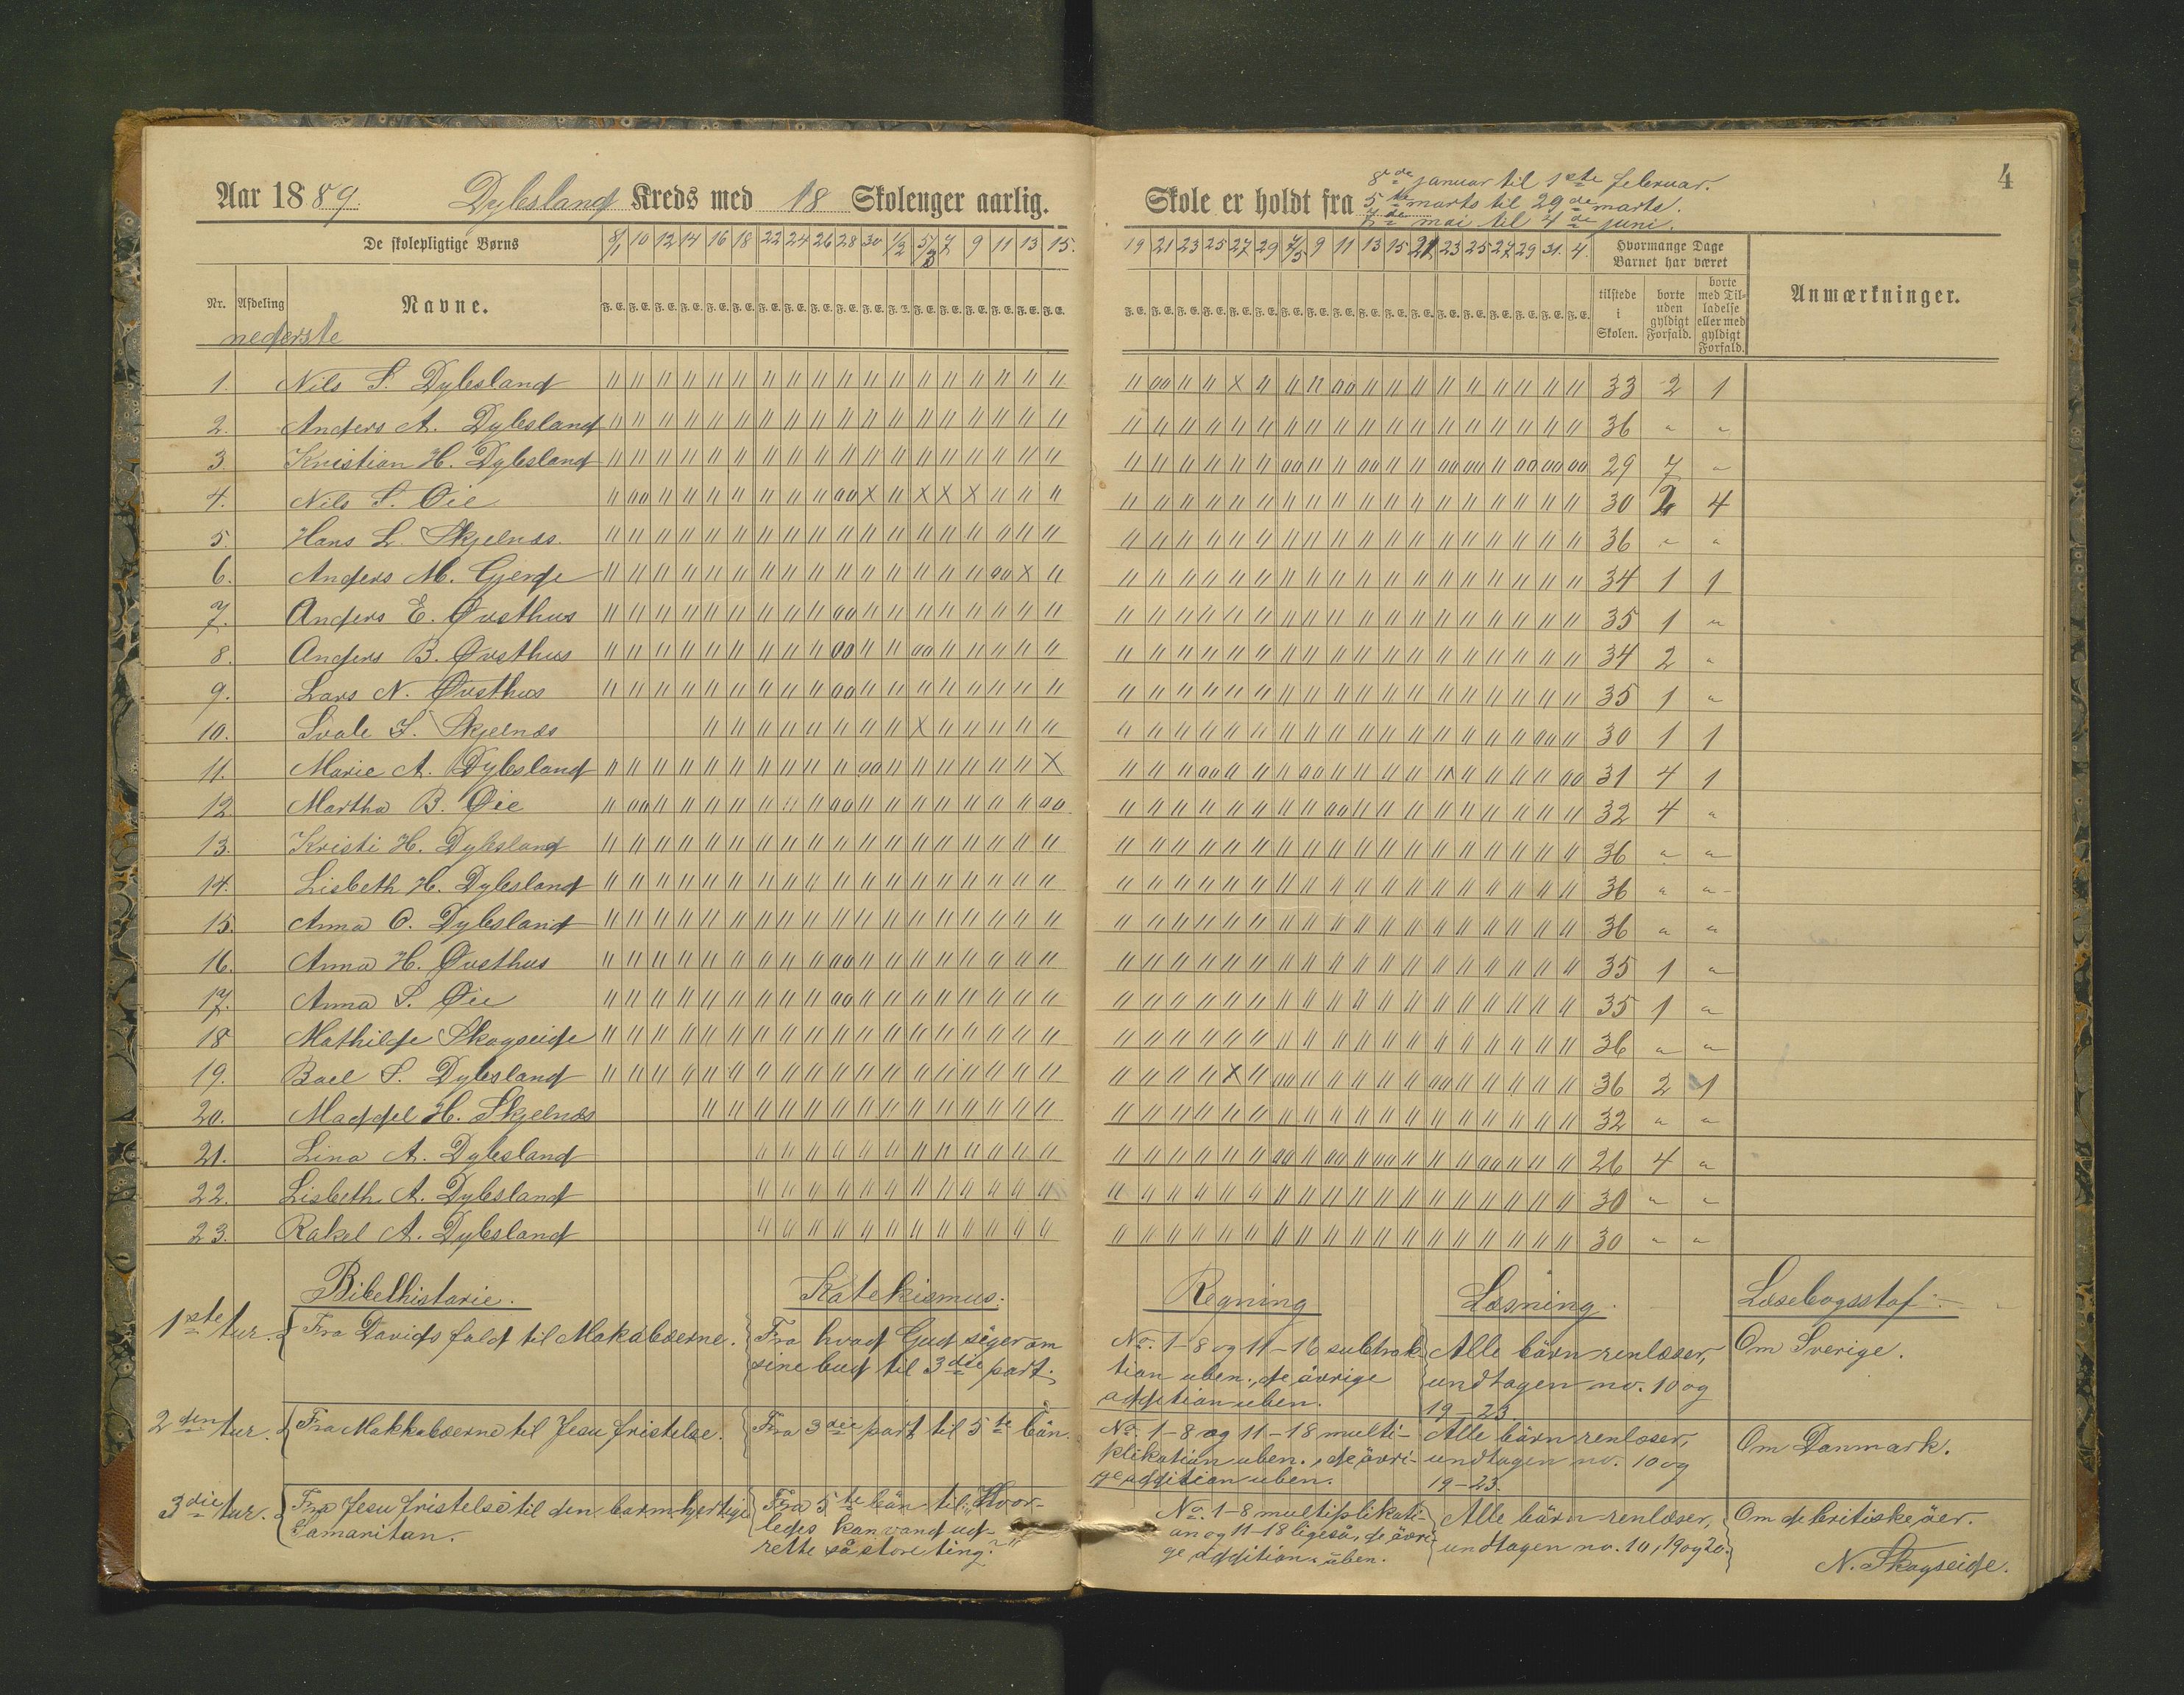 4
Aar 1889. Dybsland Kreds med 18 Skoleuger aarlig.
Skole er holdt fra 8de januar til 1ste februar.
5te marts til 29de marts.
7de mai til 4de juni.
De skolepligtige Børns
8/1 10 12 14 16 18 22 24 26 28 30 1/2 5/3 7 9 11 13 15.
19 21 23 25 27 29 7/5 9 11 13 15 21 23 25 27 29 31. 4.
Hvormange Dage Barnet har været
Nr. Afdeling Navne.
F. E. F. E. F. E. F. E. F. E. F. E. F. E. F. E. F. E. F. E. F. E. F. E. F. E. F. E. F. E. F. E. F. E. F. E.
F. E. F. E. F. E. F. E. F. E. F. E. F. E. F. E. F. E. F. E. F. E. F. E. F. E. F. E. F. E. F. E. F. E. F. E.
tilstede i Skolen.
borte uden gyldigt Forfald.
borte med Tilladelse eller med gyldigt Forfald.
Anmærkninger.
nederste
1. Nils S. Dybsland 33 2 1
2. Anders A. Dybsland 36 " "
3. Kristian H. Dybsland 29 7 "
4. Nils S. Øie 30 2 4
5. Hans L. Skjelnæs. 36 " "
6. Anders M. Gjerde 34 1 1
7. Anders E. Øvsthus 35 1 "
8. Anders B. Øvsthus 34 2 "
9. Lars N. Øvsthus 35 1 "
10. Skjelnæs 30 1 1
11. Marie A. Dybsland 31 4 1
12. Martha B. Øie 32 4 "
13. Kristi H. Dybsland 36 " "
14. Lisbeth H. Dybsland 36 " "
15. Anna O. Dybsland 36 " "
16. Anna H. Øvsthus 35 1 "
17. Anna S. Øie 35 1 "
18 Mathilde Skogseide 36 " "
19. Boel S. Dybsland 36 2 1
20. Maddel H. Skjelnæs 32 " "
21. Lina A. Dybsland 26 4 "
22. Lisbeth A. Dybsland 30 " "
23. Rakel A. Dybsland 30 " "
Bibelhistorie. Katekismus. Regning Læsning. Læsebogsstof.
1ste tur. Fra Davids fald til Makabæerne.
Fra hvad Gud siger om
sine bud til 3die part.
No. 1-8 og 11-16 subtrak-
tion uben., de øvrige
addition uben.
Alle børn renlæser,
undtagen no. 10 og
19-23.
Om Sverige.
2den tur. Fra Makkabæerne til Jesu fristelse.
Fra 3die part til 5te bøn.
No. 1-8 og 11-18 multi-
plikation uben., de øvri-
ge addition uben.
Alle børn renlæser,
undtagen no. 10 og
19-23.
Om Danmark.
3die tur. Fra Jesu fristelse til den barmhjertige
Samaritan.
Fra 5te bøn til: "Hvor-
ledes kan vand ud-
rette så store ting?"
No. 1-8 multiplikati-
on og 11-18 ligeså, de øvri-
ge addition. uben.
Alle børn renlæser,
undtagen no. 10, 19 og 20.
Om de britiske øer.
N. Skogseide.